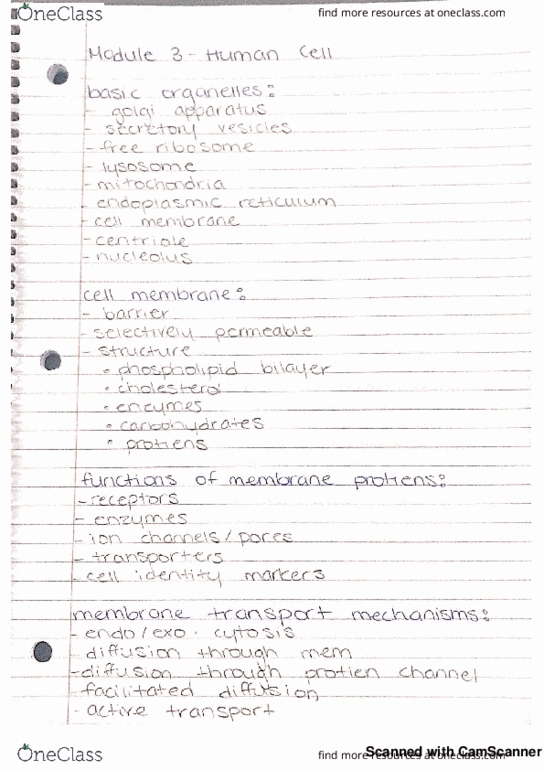 OneClass
find more resources at oneclass.com
Module 3 - Human Cell
basic organelles:
- golgi apparatus
- secretory vesicles
- free ribosome
- lysosome
- mitochondria
- endoplasmic reticulum
- cell membrane
- centriole
- nucleolus
cell membrane:
- barrier
- selectively permeable
- structure
• phospholipid bilayer
• cholesterol
• enzymes
• carbohydrates
• protiens
functions of membrane protiens:
- receptors
- enzymes
- ion channels / pores
- transporters
- cell identity markers
membrane transport mechanisms:
- endo / exo · cytosis
- diffusion through mem
- diffusion through protien channel
- facilitated diffusion
- active transport
OneClass
find more resources at oneclass.com
Scanned with CamScanner